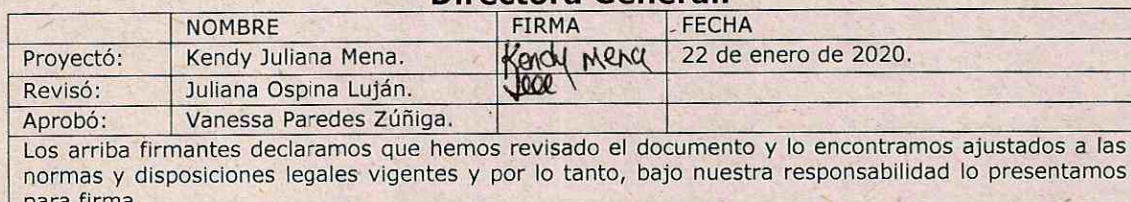 Directora General.
NOMBRE FIRMA FECHA
Proyectó: Kendy Juliana Mena. Kendy Mena 22 de enero de 2020.
Revisó: Juliana Ospina Luján.
Aprobó: Vanessa Paredes Zúñiga.
Los arriba firmantes declaramos que hemos revisado el documento y lo encontramos ajustados a las
normas y disposiciones legales vigentes y por lo tanto, bajo nuestra responsabilidad lo presentamos
para firma.